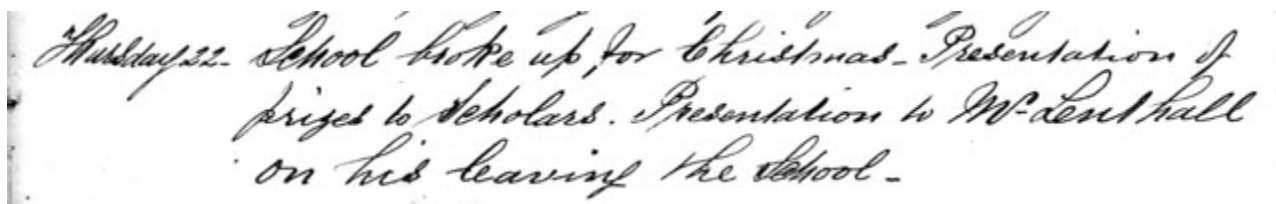 Thursday 22- School broke up for Christmas- Presentation of
prizes to Scholars. Presentation to Mr Lenthall
on his leaving the School-